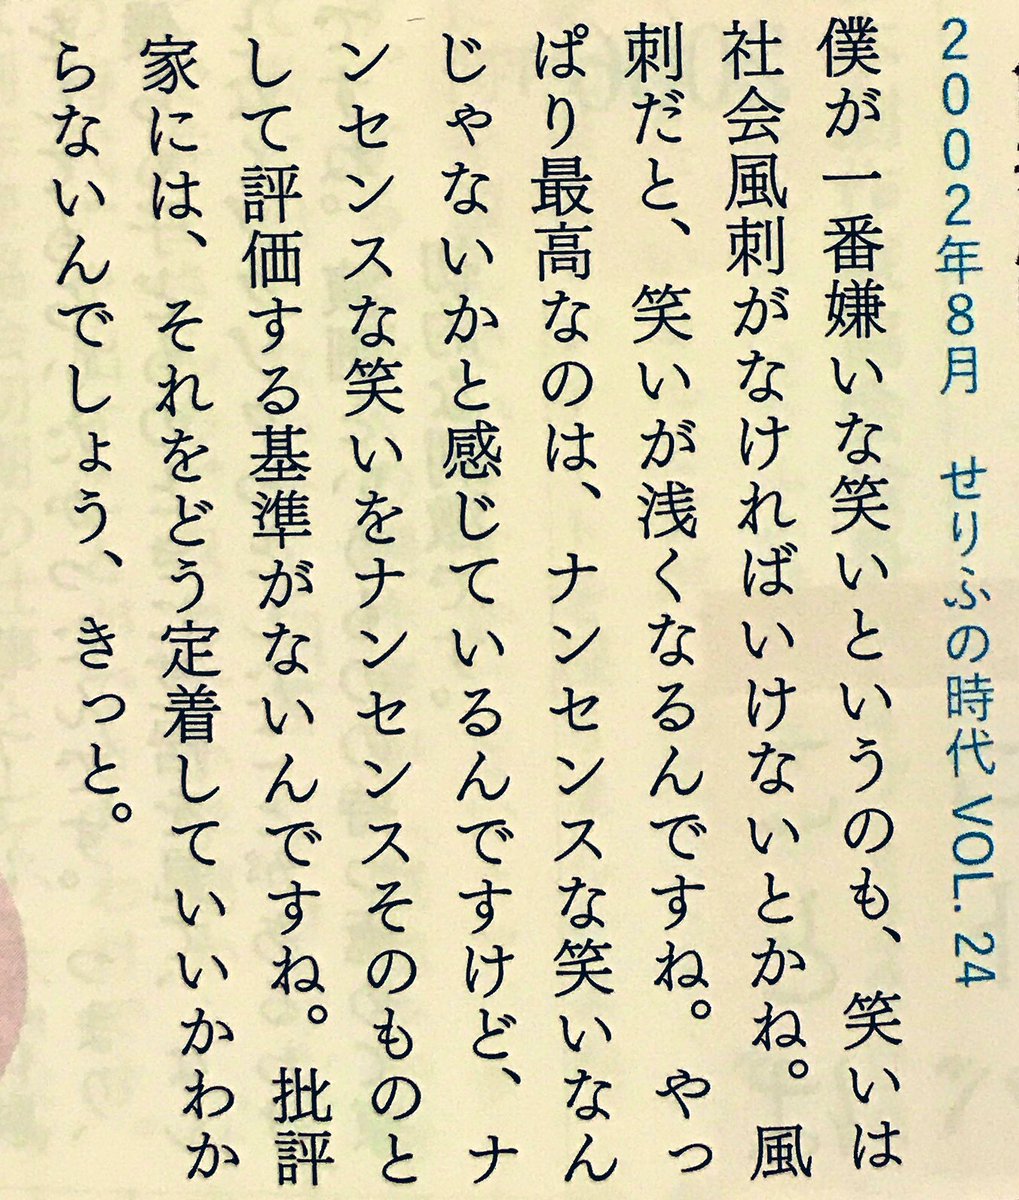 2002年8月 せりふの時代 VOL. 24
僕が一番嫌いな笑いというのも、笑いは
社会風刺がなければいけないとかね。風
刺だと、笑いが浅くなるんですね。やっ
ぱり最高なのは、ナンセンスな笑いなん
じゃないかと感じているんですけど、ナ
ンセンスな笑いをナンセンスそのものと
して評価する基準がないんですね。批評
家には、それをどう定着していいかわか
らないんでしょう、きっと。